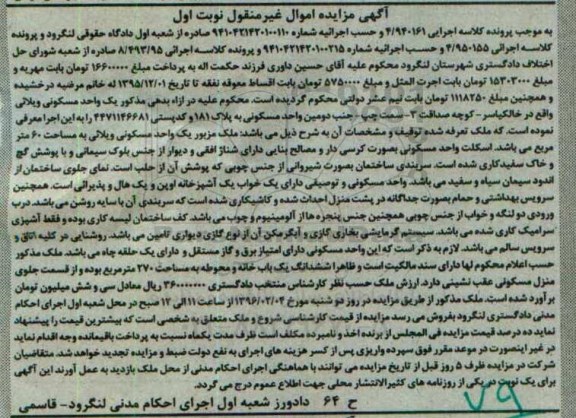 آگهی مزایده اموال غیرمنقول نوبت اول
به موجب پرونده کلاسه اجرایی ۴/۹۴۰۱۶۱ و حسب اجرائیه شماره ۹۴۱۰۴۲۱۴۲۰۱۰۰۱۱۰ صادره از شعبه اول دادگاه حقوقی لنگرود و پرونده
کلاسه اجرائی ۴/۹۵۰۱۵۵ و حسب اجرائیه شماره ۹۴۱۰۴۲۱۴۲۰۱۰۰۲۱۵ و پرونده کلاسه اجرائی ۸/۴۹۳/۹۵ صادره از شعبه شورای حل
اختلاف دادگستری شهرستان لنگرود محکوم علیه آقای حسین داوری فرزند حکمت اله به پرداخت مبلغ ۱۶۶۰۰۰۰۰ تومان بابت مهریه و
مبلغ ۱۵۳۰۳۰۰۰ تومان بابت اجرت المثل و مبلغ ۵۷۵۰۰۰۰ تومان بابت اقساط معوقه نفقه تا تاریخ ۱۳۹۵/۱۲/۰۱ له خانم مرضیه درخشیده
و همچنین مبلغ ۱۱۱۸۲۵۰ تومان بابت نیم عشر دولتی محکوم گردیده است. محکوم علیه در ازاء بدهی مذکور یک واحد مسکونی ویلائی
واقع در خالکیاسر- کوچه صداقت ۳- سمت چپ- جنب دومین واحد مسکونی به پلاک ۱۸۱ و کدپستی ۴۴۷۱۱۴۶۶۸۱ را به این اجرا معرفی
نموده است. که ملک تعرفه شده توقیف و مشخصات آن به شرح ذیل می باشد: ملک مزبور یک واحد مسکونی ویلائی به مساحت ۶۰ متر
مربع می باشد. اسکلت واحد مسکونی بصورت کرسی دار و مصالح بنایی دارای شناژ افقی و دیوار از جنس بلوک سیمانی و با پوشش گچ
و خاک سفیدکاری شده است. سربندی ساختمان بصورت شیروانی از جنس چوبی که پوشش آن از حلب است. نمای جلوی ساختمان از
اندود سیمان سیاه و سفید می باشد. واحد مسکونی و توصیفی دارای یک خواب یک آشپزخانه اوپن و یک هال و پذیرائی است. همچنین
سرویس بهداشتی و حمام بصورت جداگانه در پشت منزل احداث شده و کاشیکاری شده است که سربندی آن با سایه روشن می باشد. درب
ورودی دو لنگه و خواب از جنس چوبی همچنین جنس پنجره ها از آلومینیوم و چوب می باشد. کف ساختمان لیسه کاری بوده و فقط آشپزی
سرامیک کاری شده می باشد. سیستم گرمایشی بخاری گازی و آبگرمکن آن از نوع گازی دیواری تامین می باشد. روشنایی در کلیه اتاق و
سرویس سالم می باشد. لازم به ذکر است که این واحد مسکونی دارای امتیاز برق و گاز مستقل و دارای یک حلقه چاه می باشد. ملک مذکور
حسب اعلام محکوم لها دارای سند مالکیت است و ظاهرا ششدانگ یک باب خانه و محوطه به مساحت ۲۷۰ مترمربع بوده و از قسمت جلوی
منزل مسکونی عقب نشینی دارد. ارزش ملک حسب نظر کارشناس منتخب دادگستری ۳۶۰۰۰۰۰۰۰ ریال معادل سی و شش میلیون تومان
برآورد شده است. ملک مذکور از طریق مزایده در روز دو شنبه مورخ ۱۳۹۶/۰۲/۰۴ از ساعت ۱۱ الی ۱۲ صبح در محل شعبه اول اجرای احکام
مدنی دادگستری لنگرود بفروش می رسد مزایده از قیمت کارشناسی شروع و ملک متعلق به شخصی است که بیشترین قیمت را پیشنهاد
نماید ده درصد قیمت مزایده فی المجلس از برنده اخذ و نامبرده مکلف است ظرف مدت یکماه نسبت به پرداخت باقیمانده وجه اقدام نماید
در غیر اینصورت در موعد مقرر فوق سپرده واریزی پس از کسر هزینه های اجرای به نفع دولت ضبط و مزایده تجدید خواهد شد. متقاضیان
شرکت در مزایده ظرف ۵ روز قبل از تاریخ مزایده می توانند با هماهنگی اجرای احکام مدنی از محل ملک بازدید به عمل آورند این آگهی
برای یک نوبت در یکی از روزنامه های کثیرالانتشار محلی جهت اطلاع عموم درج می گردد.
ح ۶۴ دادورز شعبه اول اجرای احکام مدنی لنگرود- قاسمی
۷۹